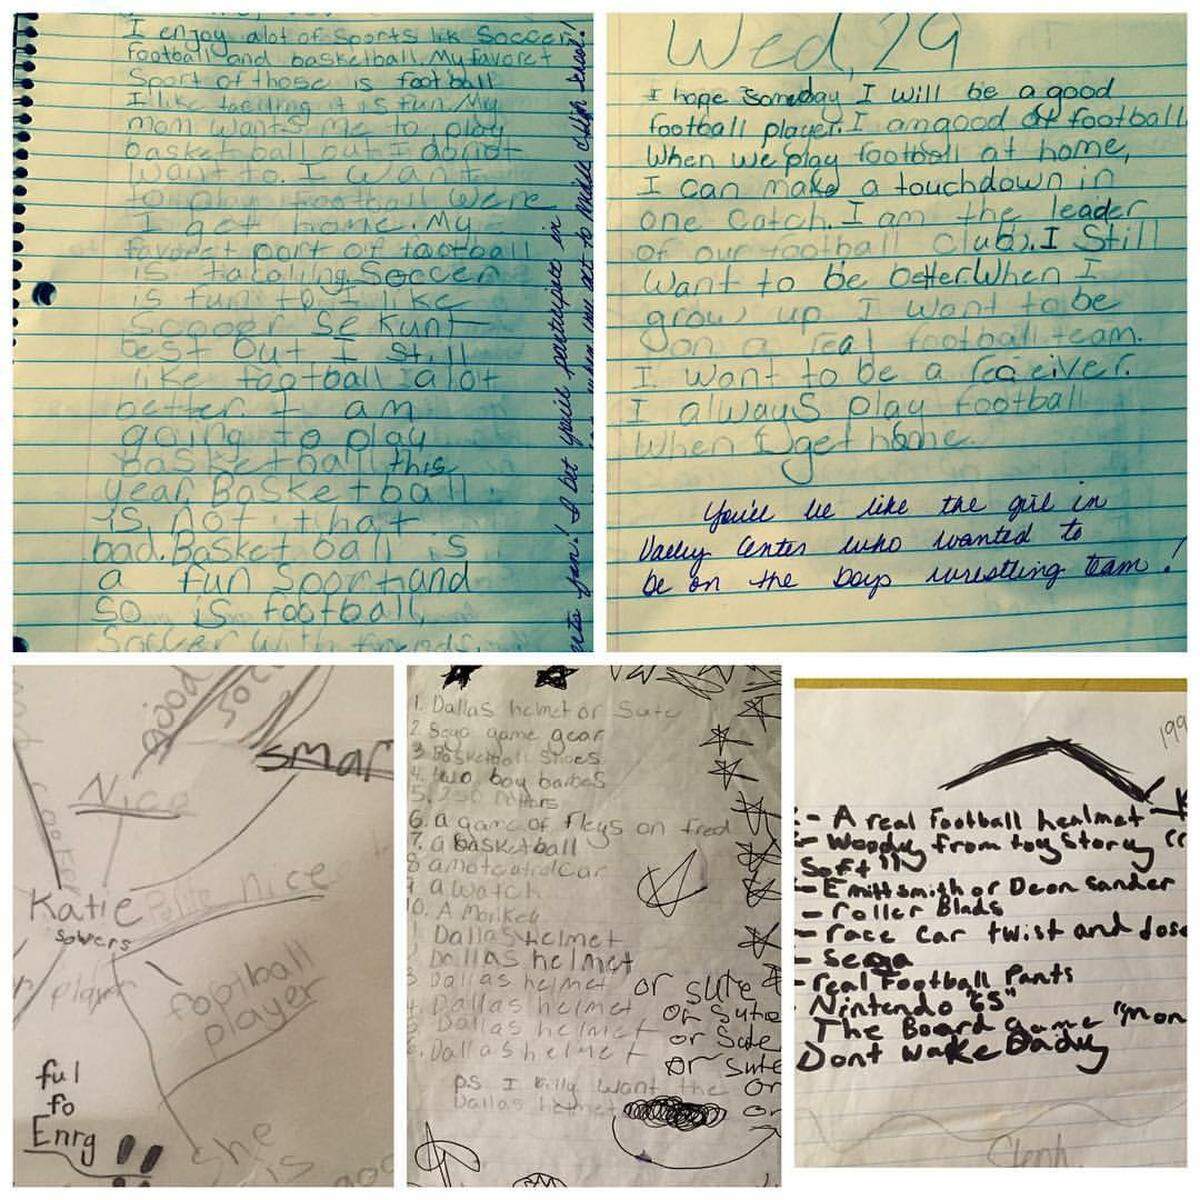 I enjoy alot of sports lik Soccer
football and basketball. My favoret
Sport of those is football
I like tacling it is fun. My
mom wants me to play
basketball but I do not
want to. I want
to play football were
I get home. My
favoret part of football
is tacaling. Soccer
is fun to I like
Soccer Se kunt
best But I still
like football alot
better. I am
going to play
basketball this
year. Basketball
is not that
bad. Basket ball is
a fun Sport and
so is football,
Soccer with friends.
fun! I bet you'll participate in
when you get to middle
Wed, 29
I hope someday I will be a good
football player. I am good at football
When we play football at home,
I can make a touchdown in
one catch. I am the leader
of our football club. I Still
Want to be better. When I
grow up I want to be
on a real football team.
I want to be a receiver.
I always play football
When I get home.
You'll be like the girl in
Valley Center who wanted to
be on the boys wrestling team!
good
Nice
smar
Katie
Sowers
Nice
player
football
player
ful
fo
Enrg !!
She
is
1. Dallas helmet or Sute
2. Sega game gear
3. Basketball Shoes
4. two boy barbes
5. 250
6. a game of fleys on fred
7. a basketball
8. car
9. a watch
10. A Monkey
1. Dallas helmet
2. Dallas helmet
3. Dallas helmet or sute
4. Dallas helmet or Sute
5. Dallas helmet or Sute
6. Dallas helmet or sute
ps I rilly want the or
Dallas helmet or
199
- A real Football healmet
- Woody from toy Story
Soft
- Emitt smith or Deon Sander
- roller Blads
- race car twist and
- Sega
- real Football Pants
- Nintendo "65"
The Board game "mon
Dont wake Dady